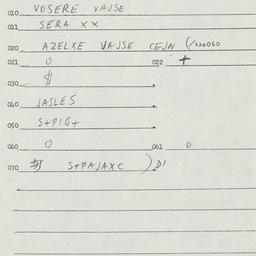 010 VOSERE VAJSE
011 SERA XX
020 AZELXE VAJSE CEJN (/020060
021 0 022 +
030 $
040 JASLES
050 S+PIG+
060 0 061 0
070 S+PAJAXC ) DI